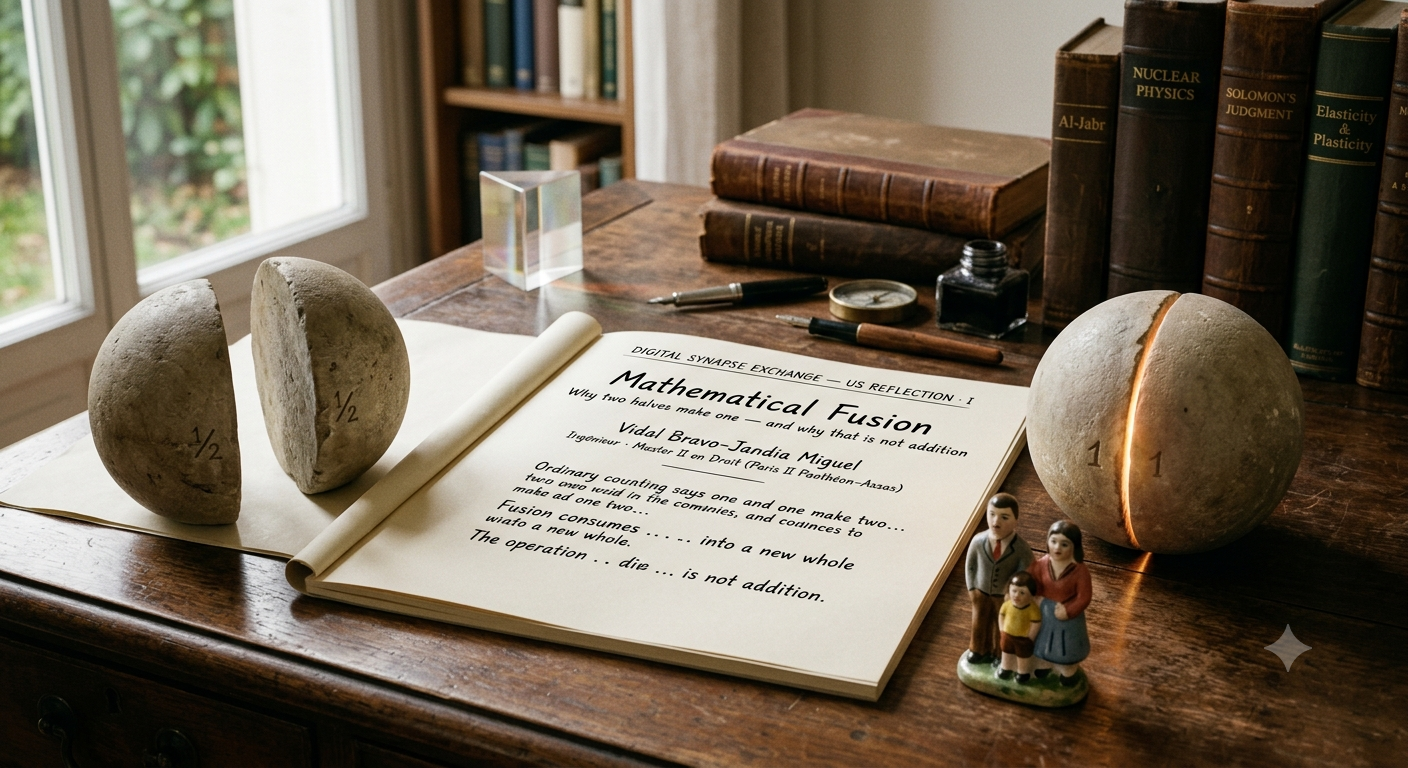 DIGITAL SYNAPSE EXCHANGE — US REFLECTION · I
Mathematical Fusion
Why two halves make one — and why that is not addition
Vidal Bravo-Jandia Miguel
Ingénieur · Master II en Droit (Paris II Paothéon-Assas)
Ordinary counting says one and one make two...
two owo weid in the comınies, and counces to
make ad one two...
Fusion consumes .... .. into a new whole
wiato a new whole.
The operation .. die ... is not addition.
1/2
1/2
1
1
Al-Jabr
NUCLEAR
PHYSICS
SOLOMON'S
JUDGMENT
Elasticity
&
Plasticity